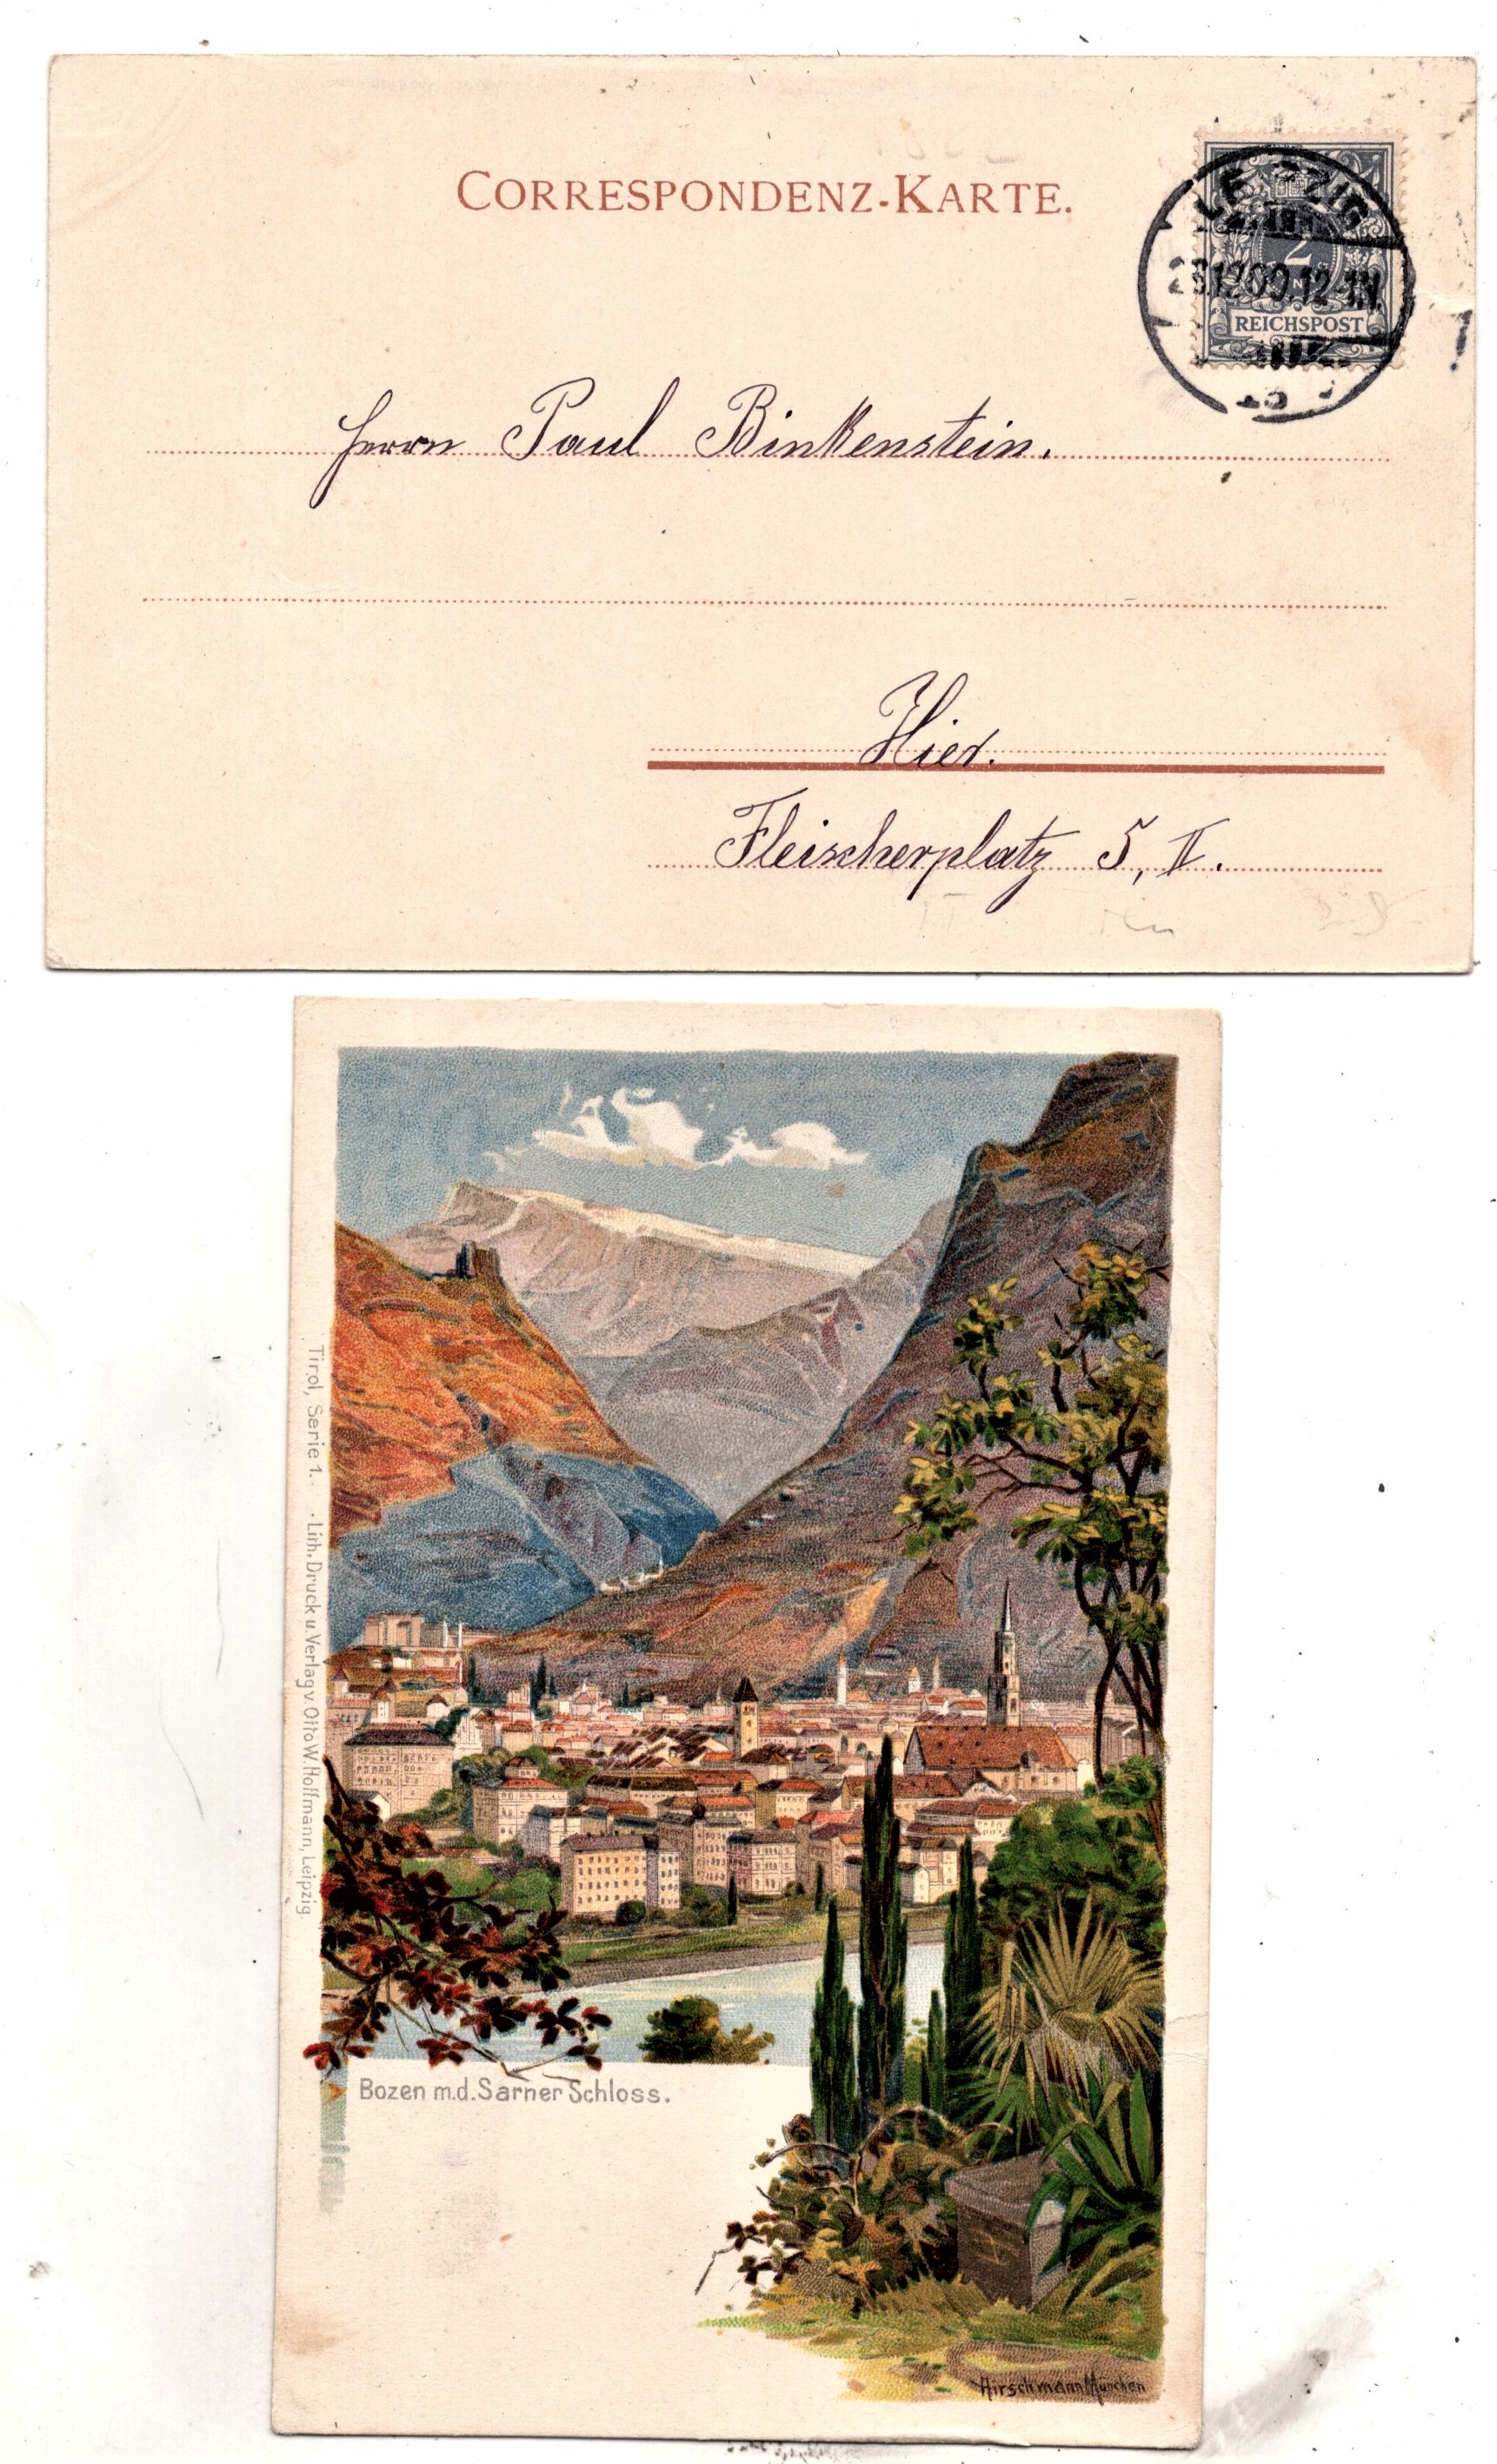 CORRESPONDENZ-KARTE.
LEIPZIG
2
REICHSPOST
Herrn Paul Binkenstein.
Hier.
Fleischerplatz 5, II.
Tirol, Serie 1. · Lith. Druck u. Verlag v. Otto W. Hoffmann, Leipzig.
Bozen m.d. Sarner Schloss.
Hirschmann München